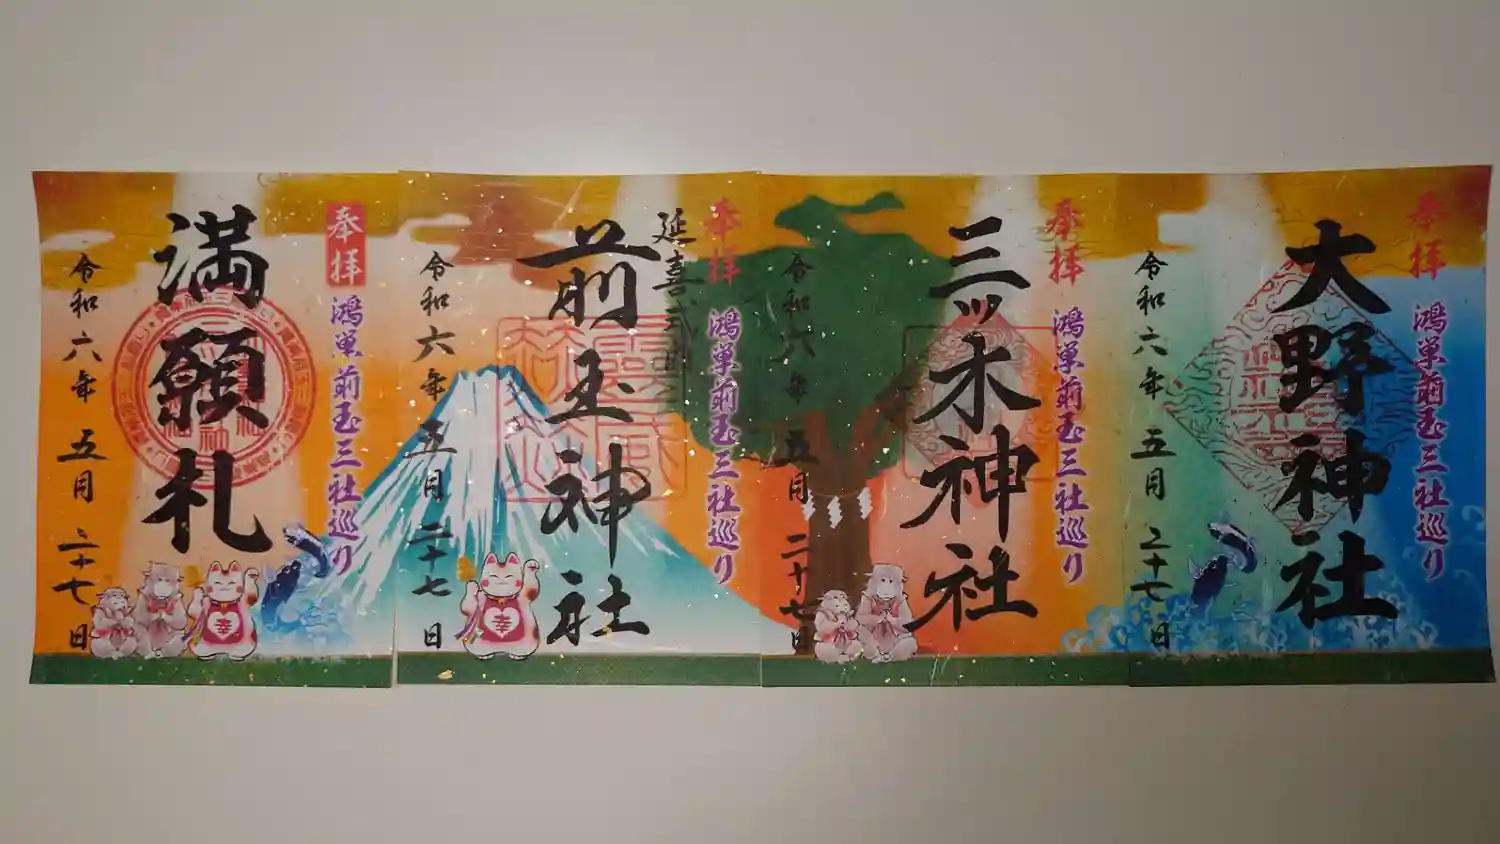 奉拝
鴻巣前玉三社巡り
大野神社
令和六年五月二十七日
奉拝
鴻巣前玉三社巡り
三ッ木神社
令和六年五月二十七日
奉拝
鴻巣前玉三社巡り
延喜式内
前玉神社
令和六年五月二十七日
幸
奉拝
鴻巣前玉三社巡り
満願札
令和六年五月二十七日
幸